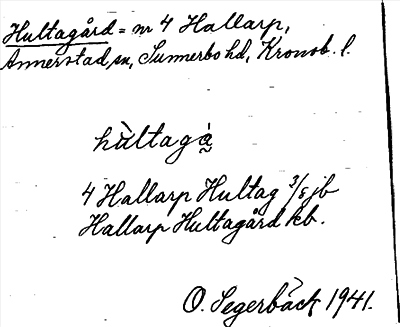 Hultagård = nr 4 Hallarp,
Annerstad sn, Sunnerbo hd, Kronob. l.
hùltagà̰
4 Hallarp Hultag 3/8 jb
Hallarp Hultagård kb.
O. Segerbäck 1941.